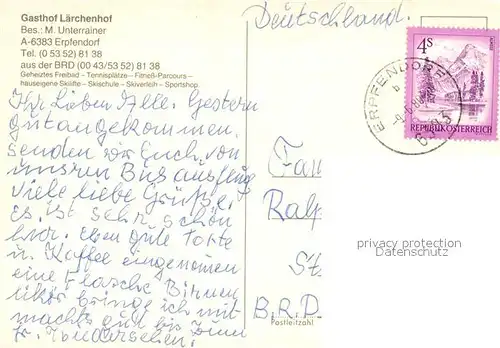 Gasthof Lärchenhof
Bes.: M. Unterrainer
A-6383 Erpfendorf
Tel. (0 53 52) 81 38
aus der BRD (00 43/53 52) 81 38
Geheiztes Freibad – Tennisplätze – Fitneß-Parcours –
hauseigene Skilifte – Skischule – Skiverleih – Sportshop
Ihr Lieben Alle. Gestern
gut angekommen.
Senden wir Euch von
unsren Bus ausflug
viele liebe Grüße.
es ist sehr schön
hier. Eben gute Torte
u Kaffee eingenomen
eine Flasche Birnen
likör bringe ich mit
machts gut bis zum
Wiedersehen.
Deutschland.
4S
REPUBLIK ÖSTERREICH
ERPFENDORF
6383
Fam
Ralf
St
B.R.D
Postleitzahl
privacy protection
Datenschutz